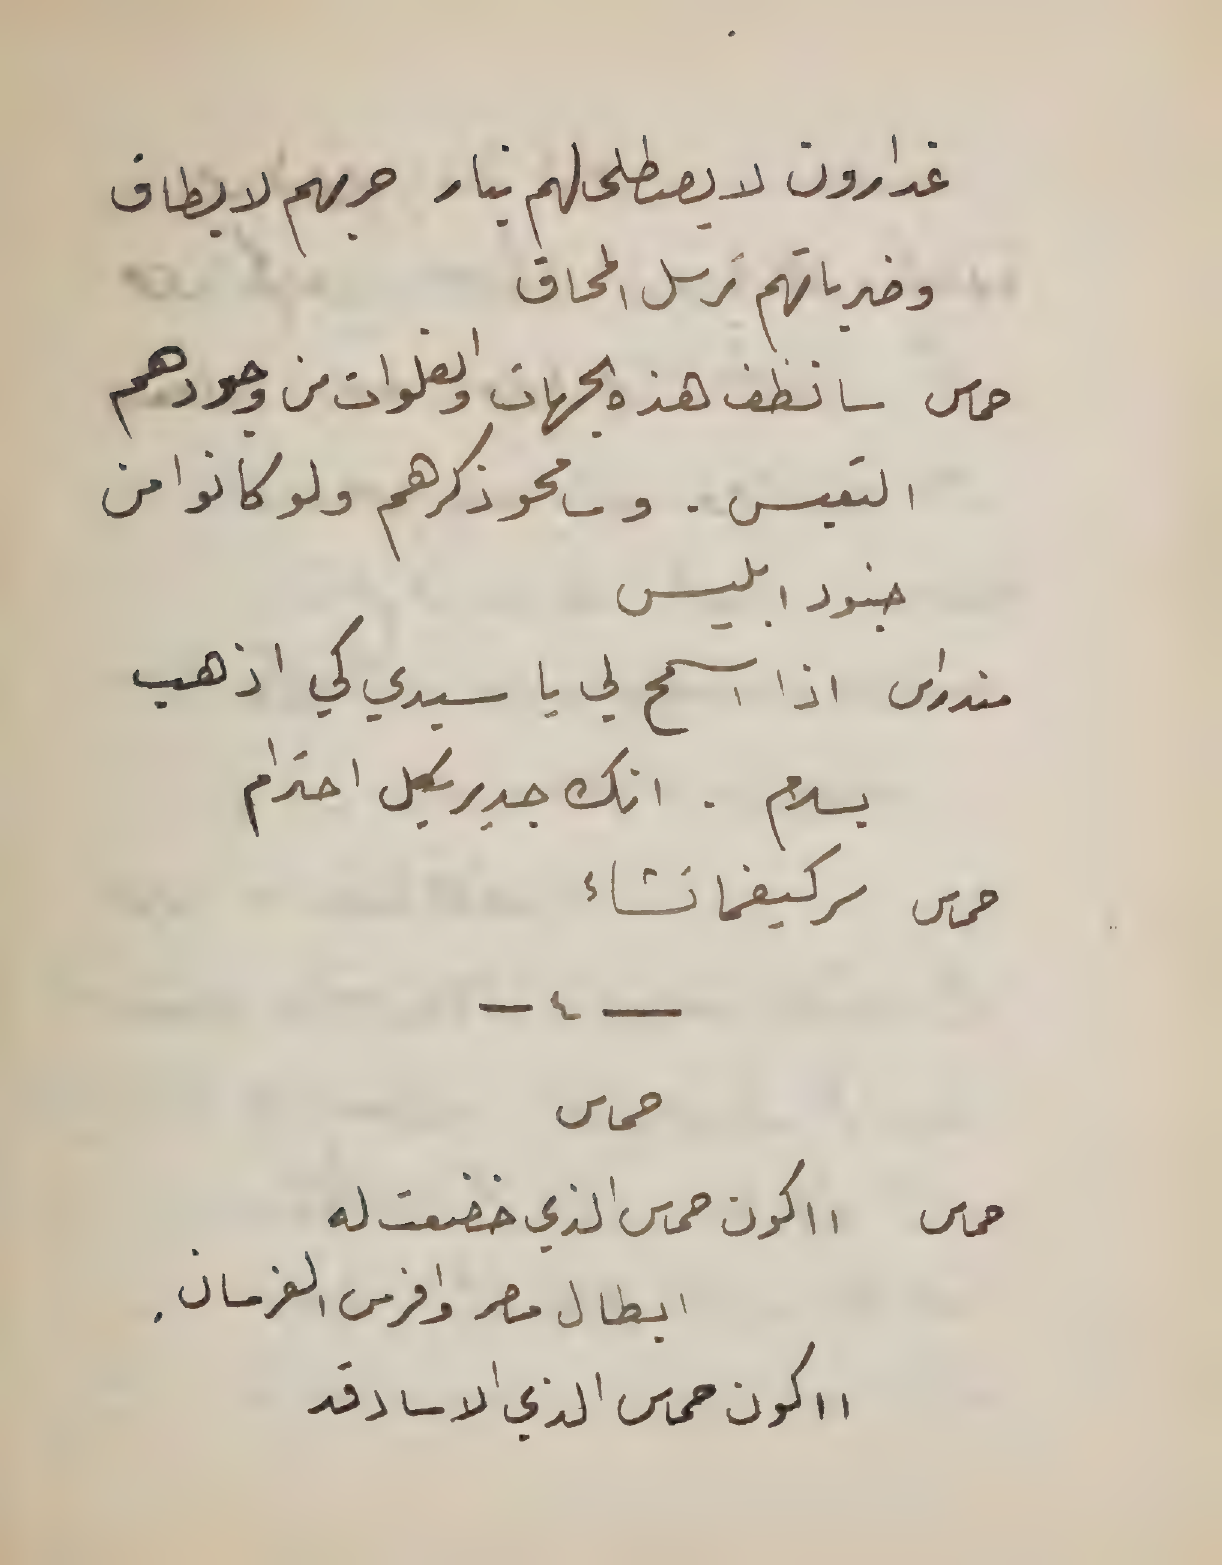 غدارون لا يصطلى لهم بنار حربهم لا يطاق
وضرباتهم ترسل المحاق
حماس سانظف هذه الجهات والفلوات من وجودهم
التعيس . وسامحو ذكرهم ولو كانوا من
جنود ابليس
مندراس اذا اسمح لي يا سيدي كي اذهب
بسلام . انك جدير بكل احترام
حماس سر كيفما تشاء
— ٤ —
حماس
حماس ااكون حماس الذي خضعت له
ابطال مصر وافرس الفرسان .
ااكون حماس الذي الاساد قد